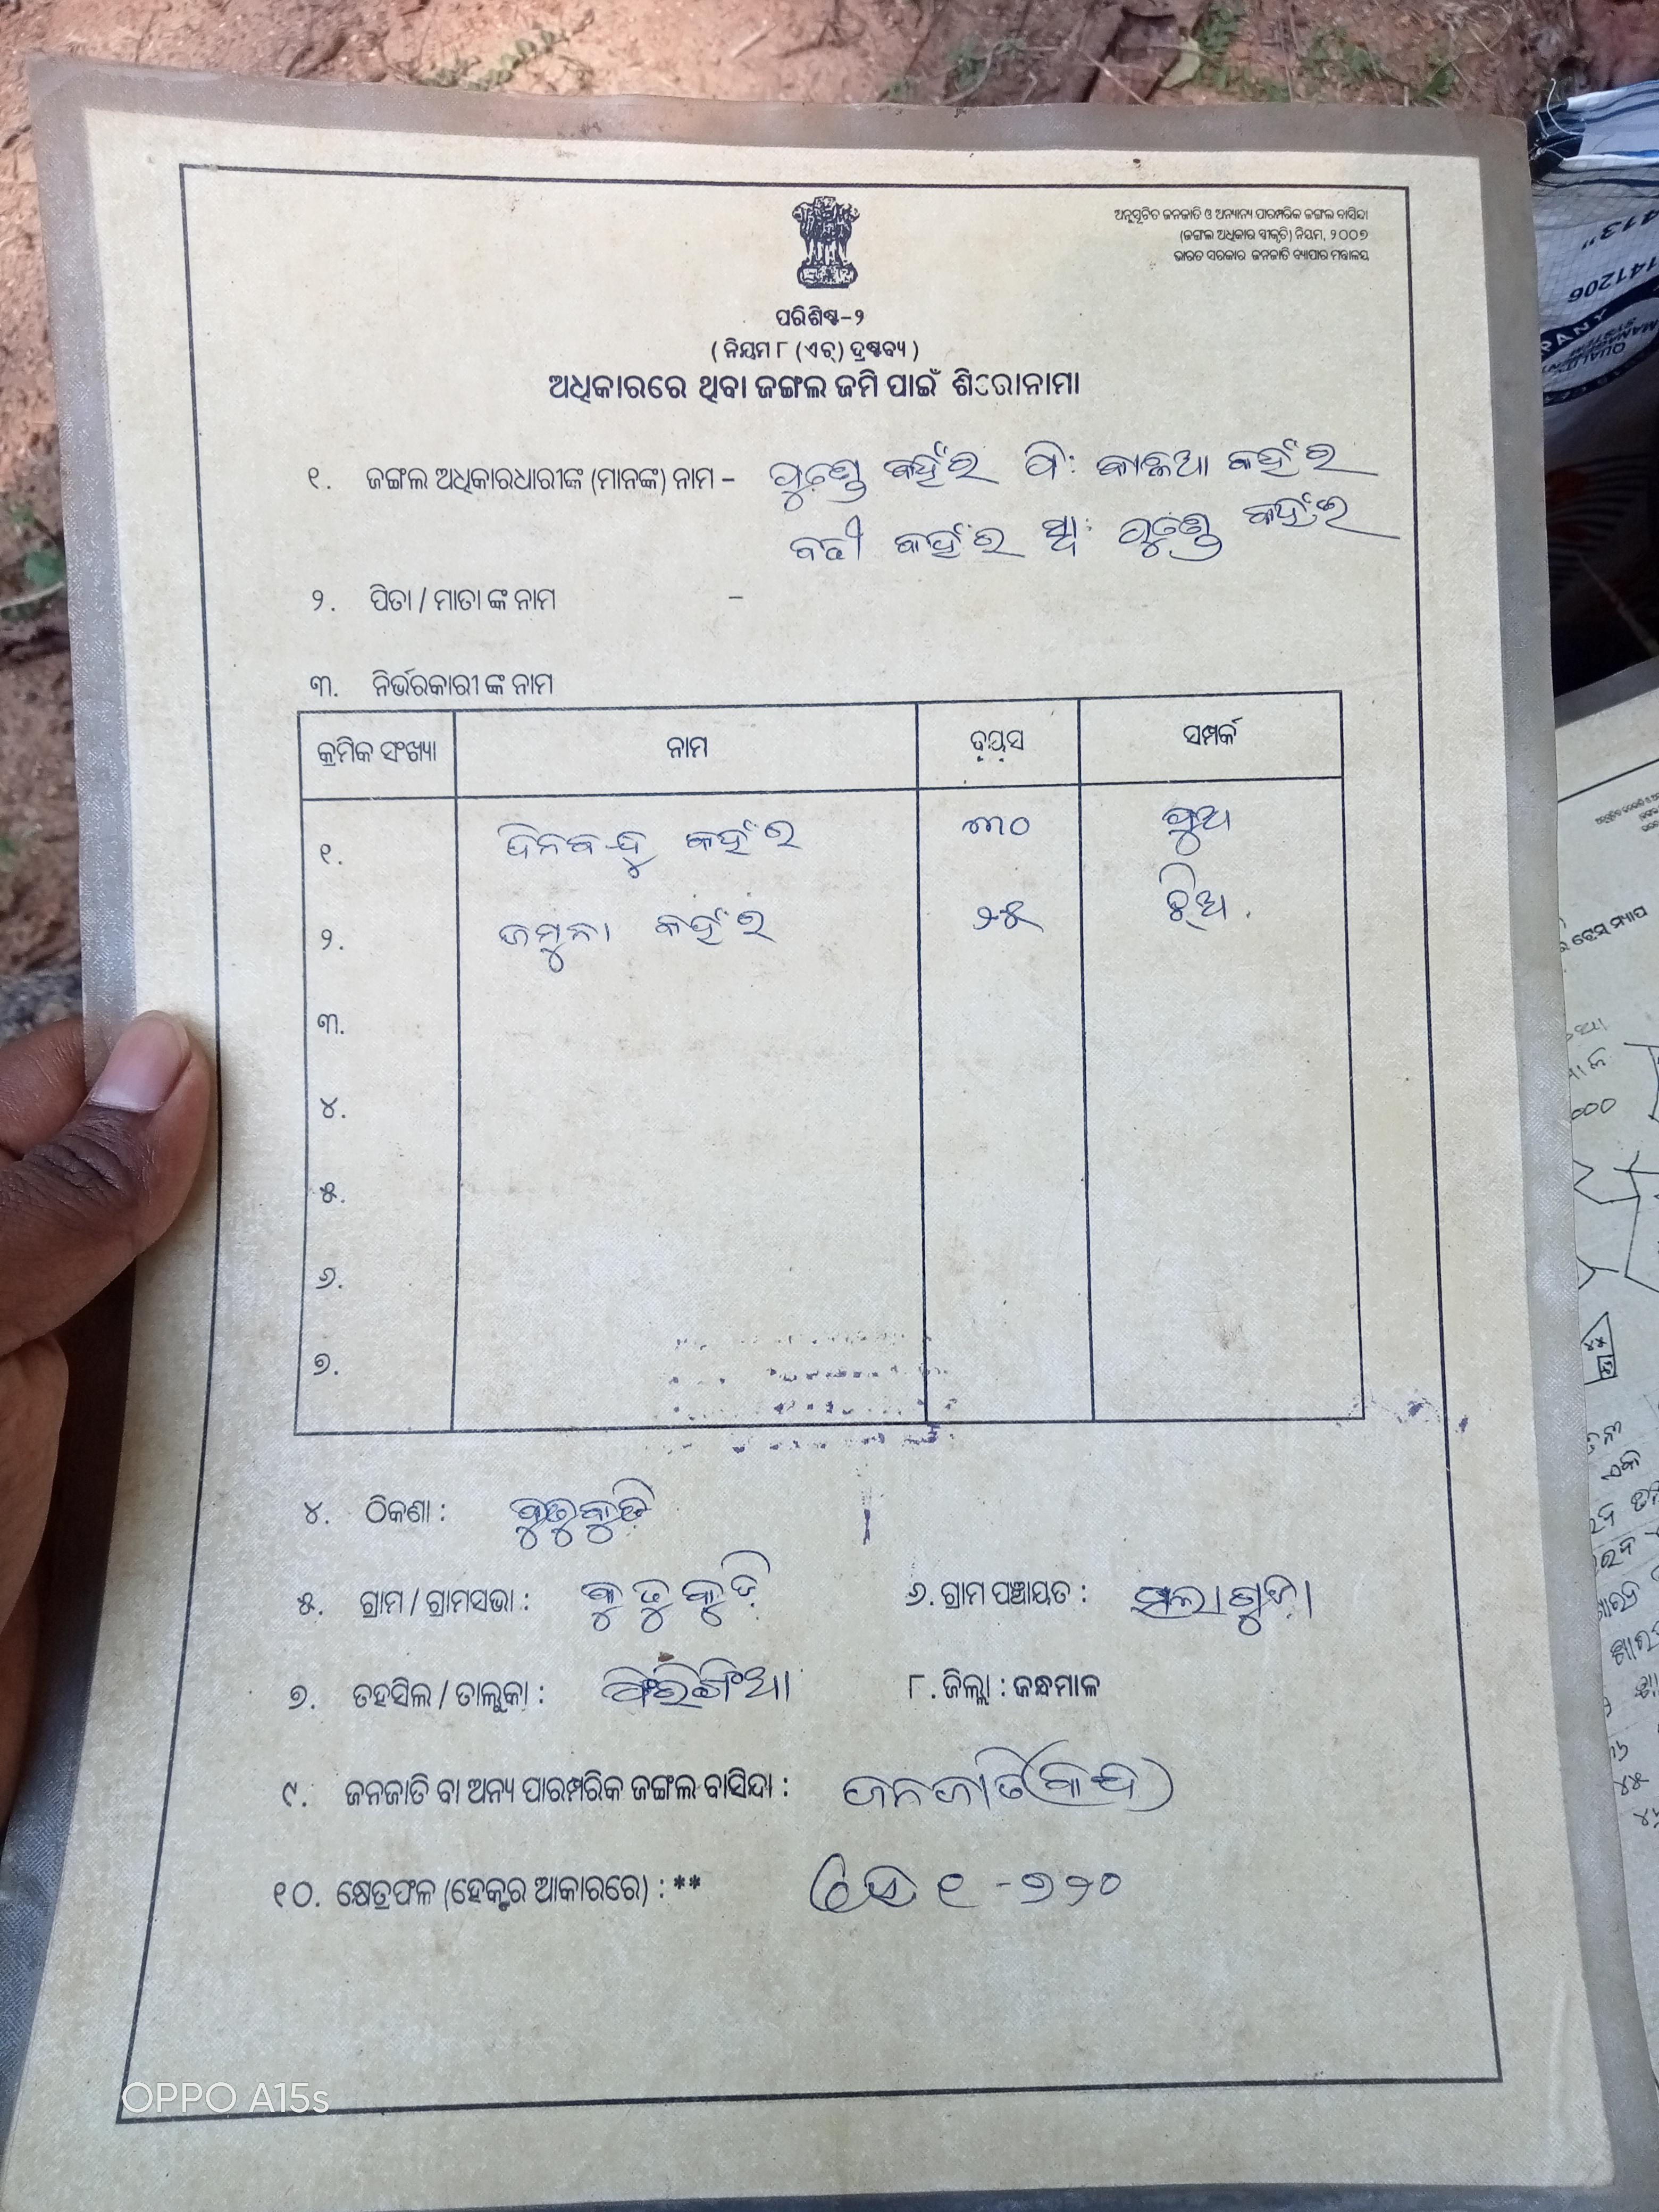 ଅନୁସୂଚିତ ଜନଜାତି ଓ ଅନ୍ୟାନ୍ୟ ପାରମ୍ପରିକ ଜଙ୍ଗଲ ବାସିନ୍ଦା
(ଜଙ୍ଗଲ ଅଧିକାର ସ୍ୱୀକୃତି) ନିୟମ, ୨୦୦୭
ଭାରତ ସରକାର ଜନଜାତି ବ୍ୟାପାର ମନ୍ତ୍ରାଳୟ
ପରିଶିଷ୍ଟ-୨
( ନିୟମ ୮ (ଏଚ୍) ଦ୍ରଷ୍ଟବ୍ୟ )
ଅଧିକାରରେ ଥିବା ଜଙ୍ଗଲ ଜମି ପାଇଁ ଶିରୋନାମା
୧. ଜଙ୍ଗଲ ଅଧିକାରଧାରୀଙ୍କ (ମାନଙ୍କ) ନାମ - କହଁର ପି: କହଁର
କହଁର ସ୍ୱା: କହଁର
୨. ପିତା / ମାତା ଙ୍କ ନାମ -
୩. ନିର୍ଭରକାରୀ ଙ୍କ ନାମ
କ୍ରମିକ ସଂଖ୍ୟା ନାମ ବୟସ ସମ୍ପର୍କ
୧. ଦିନବନ୍ଧୁ କହଁର ୩୦ ପୁଅ
୨. ଜମୁନା କହଁର ୨୫ ଝିଅ
୩.
୪.
୫.
୬.
୭.
୪. ଠିକଣା : କୁତୁକୁଡ଼ି
୫. ଗ୍ରାମ / ଗ୍ରାମସଭା : କୁତୁକୁଡ଼ି ୬. ଗ୍ରାମ ପଞ୍ଚାୟତ :
୭. ତହସିଲ / ତାଲୁକା : ଫିରିଙ୍ଗିଆ ୮. ଜିଲ୍ଲା : କନ୍ଧମାଳ
୯. ଜନଜାତି ବା ଅନ୍ୟ ପାରମ୍ପରିକ ଜଙ୍ଗଲ ବାସିନ୍ଦା : ଜନଜାତି (କନ୍ଧ)
୧୦. କ୍ଷେତ୍ରଫଳ (ହେକ୍ଟର ଆକାରରେ) : ** ହେ ୧ - ୭୨୦
OPPO A15s